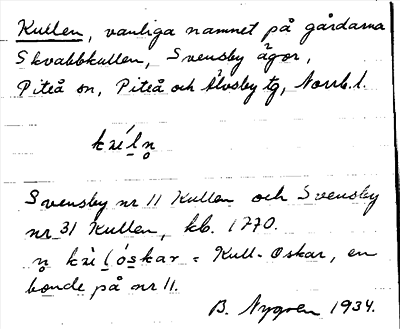 Kullen, vanliga namnet på gårdarna
Skvabbkullen, Svensby ägor,
Piteå sn, Piteå och Älvsby tg, Norrb. l.
Svensby nr 11 Kullen och Svensby
nr 31 Kullen, kb. 1770.
= Kull-Oskar, en
bonde på nr 11.
B. Nygren 1934.